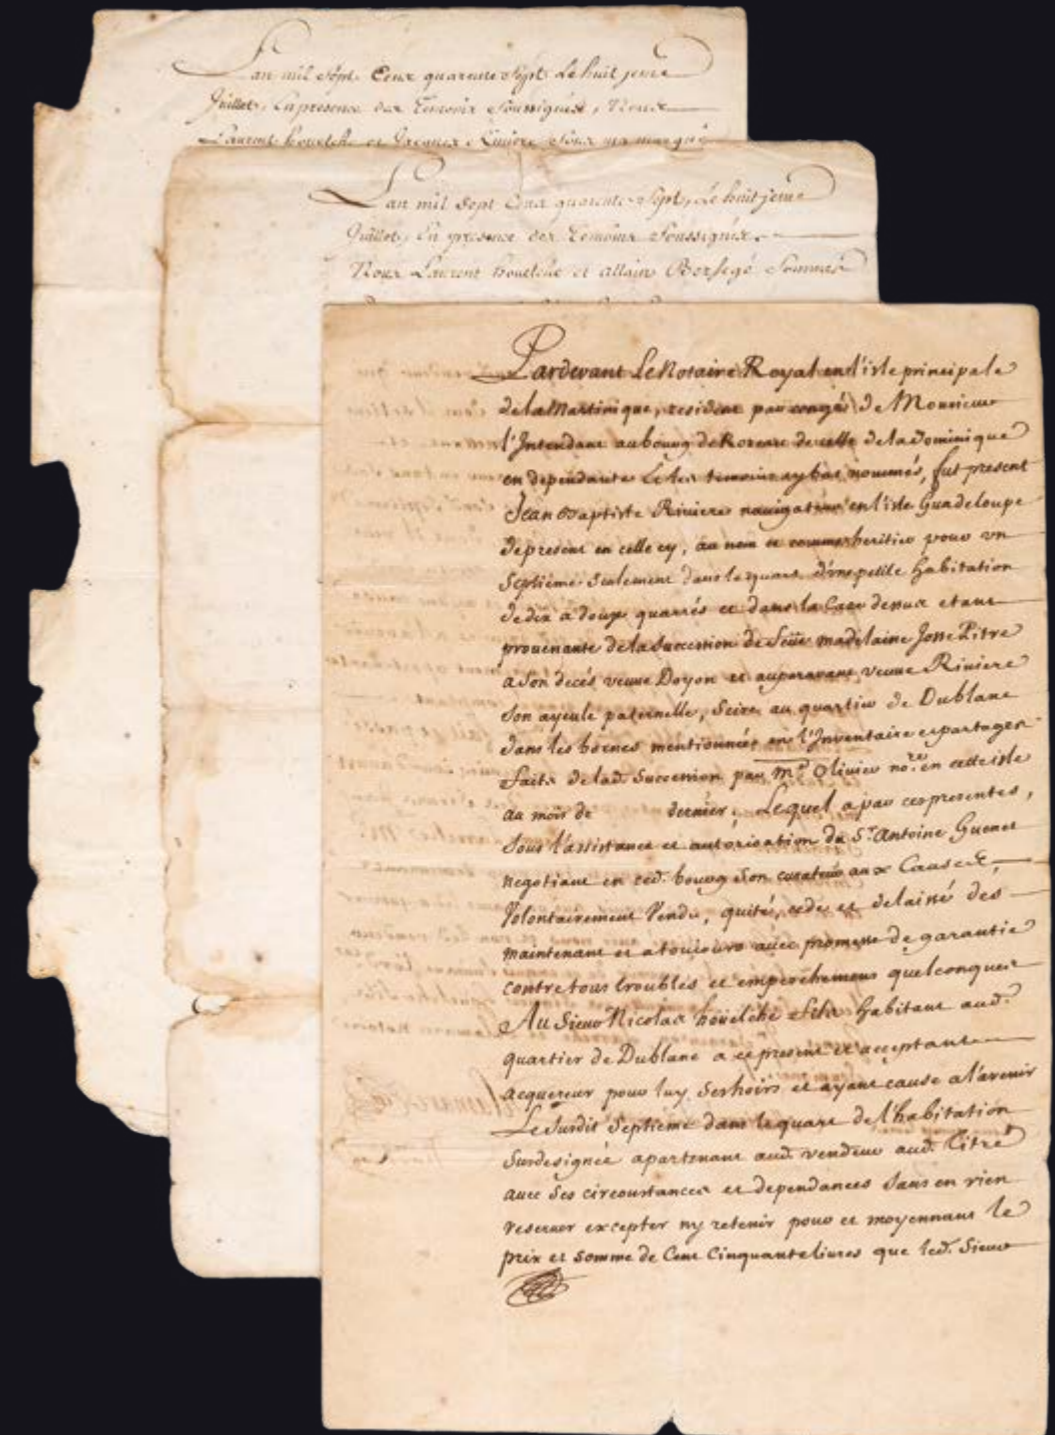 Lan mil sept Cens quarente sept, Le huit jeme
Juillet, En presence des Temoins Soussignés, Nous
Laurent houelche et Jacques Riviere
Lan mil sept Cens quarente sept, Le huit jeme
Juillet, En presence des Temoins Soussignés.
Nous Laurent houelche et allain Sommés
Pardevant Le Notaire Royal en l'isle principale
de la Martinique, resident par congés de Monsieur
l'Intendant au bourg de Roseau de celle de la Dominique
en dependante Et les temoins cy bas nommés, fut present
Jean Baptiste Riviere navigateur en l'isle Guadeloupe
de present en celle cy, au nom et comme heritier pour un
Septieme Seulement dans le quart d'une petite habitation
de dix a douze quarrés et dans la Case dessus etant
provenante de la Succession de madelaine Josse Pitre
a Son decés veuve Doyon et auparavant veuve Riviere
Son ayeule paternelle, Scize au quartier de Dublanc
dans les bornes mentionnées en l'Inventaire et partages
faits de lad. Succession par Me. Olivier nore. en cette isle
au mois de dernier, Lequel a par ces presentes,
Sous l'assistance et autorisation du Sr. Antoine Guenet
negotiant en ced. bourg Son curateur aux Causes,
Volontairement Vendu, quité, cedé et delaissé des
maintenant et a toujours avec promesse de garantie
contre tous troubles et empechemens quelconques
Au Sieur Nicolas houelche fils habitant aud.
quartier de Dublanc a ce present et acceptant
acquereur pour luy Ses hoirs et ayant cause a l'avenir
Le Susdit Septieme dans le quart de l'habitation
Susdesignée apartenant aud. vendeur aud. Titre
avec Ses circonstances et dependances Sans en rien
reserver excepter ny retenir pour et moyennant le
prix et Somme de Cent Cinquante livres que led. Sieur